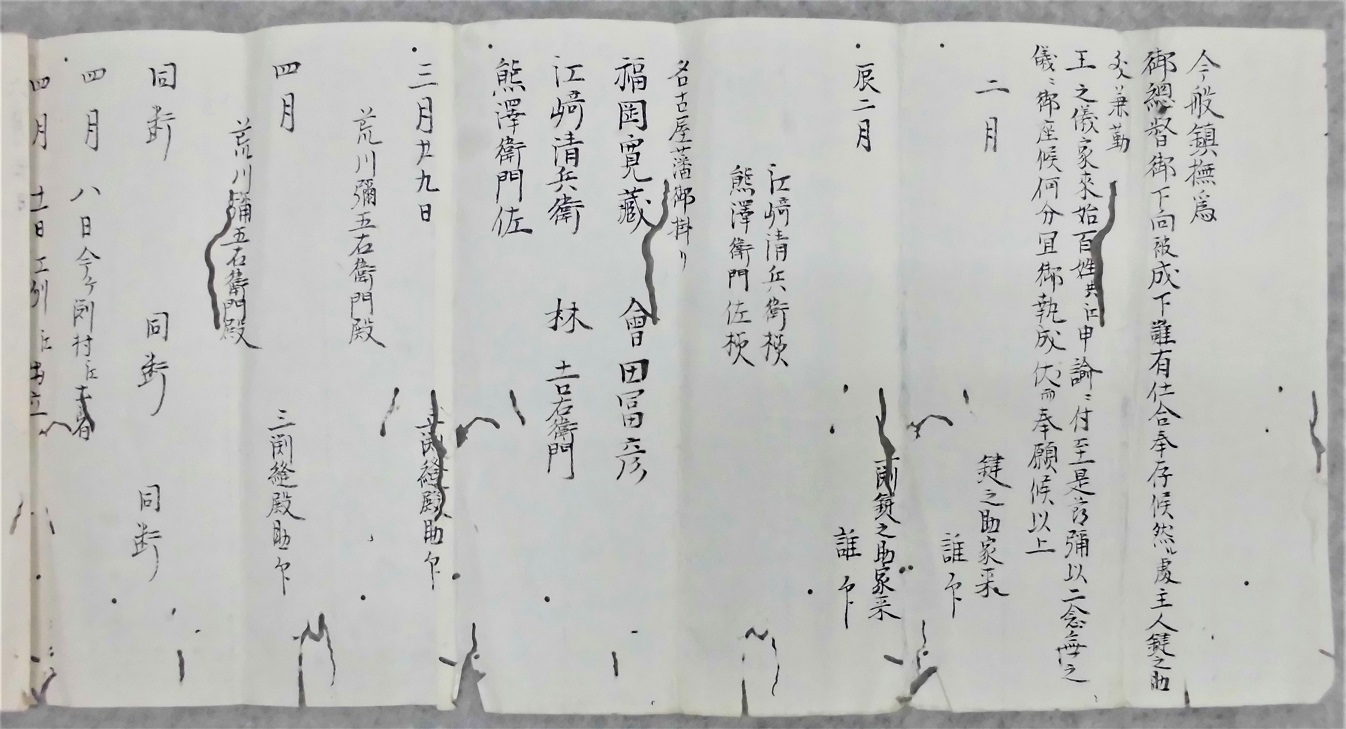 今般鎮撫為
御總督御下向被成下誰有仕合奉存候然ル處主人鍵之助
兼勤
王之儀家來始百姓共江申諭ニ付至是彌以二念無之
儀ニ御座候何分宜御執成伏而奉願候以上
二月
鍵之助家来
誰印
辰二月
鍵之助家来
誰印
江﨑清兵衛様
熊澤衛門佐様
名古屋藩御掛り
福岡寛藏 會田冨彦
江﨑清兵衛 林吉右衛門
熊澤衛門佐
三月廿九日
渕縫殿助印
荒川彌五右衛門殿
四月
三渕縫殿助印
荒川彌五右衛門殿
同断 同断 同断
四月 八日今
四月 十一日